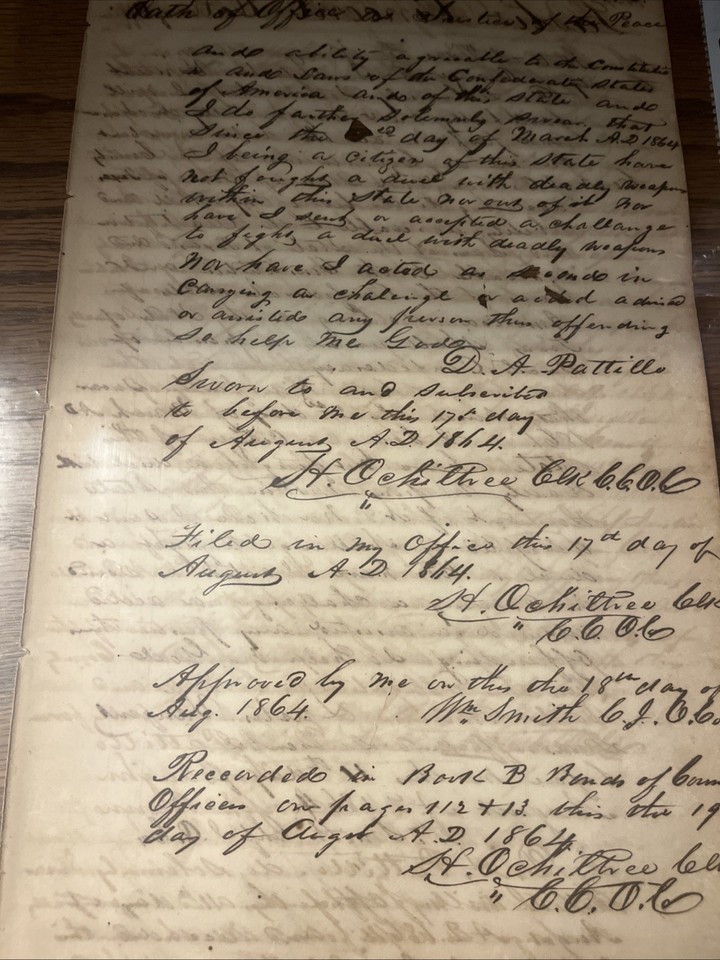 Oath of Office as Justice of the Peace
and ability agreeable to the Constitution
s and Laws of the Confederate States
of America and of this State and
I do farther Solemnly Swear, that
Since the day of March A.D 1864
I being a citizen of this State have
not fought a duel with deadly weapons
within this State nor out of it nor
have I sent or accepted a challange
to fight a duel with deadly weapons
nor have I acted as second in
Carrying a chalenge or aided advised
or assisted any person thus offending
So help me God
D. A. Pattillo
Sworn to and Subscribed
to before me this 17th day
of August A.D. 1864.
H. Ochiltree Clk C.C.O.C
Filed in my Office this 17th day of
August A.D. 1864.
H. Ochiltree Clk
" C.C.O.C
Approved by me on this the 18th day of
Aug. 1864. Wm Smith C.J.O.Co
Reccorded in Book B Bonds of Coun
Officers on pages 112 + 13. this the 19
day of Augt A.D. 1864.
H. Ochiltree Clk
" C.C.O.C